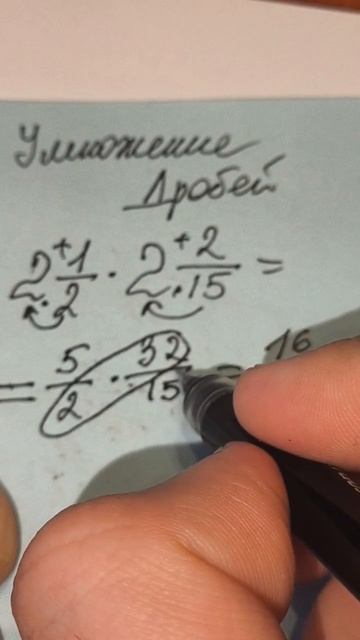 Умножение
Дробей
2 + 1/2 · 2 + 2/15 =
= 5/2 · 32/15 = 16